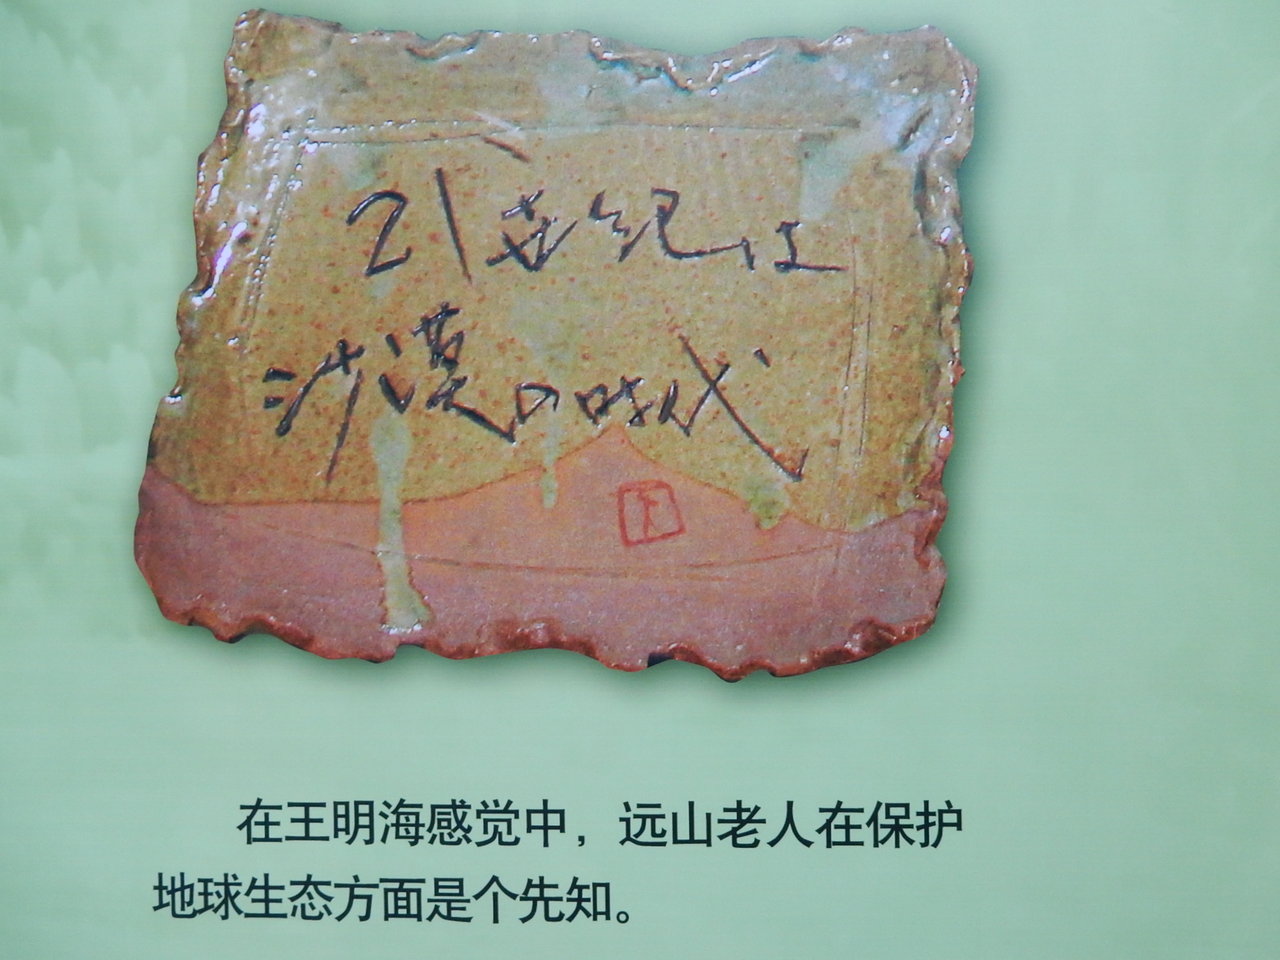 21世紀は
沙漠の時代
在王明海感觉中，远山老人在保护
地球生态方面是个先知。